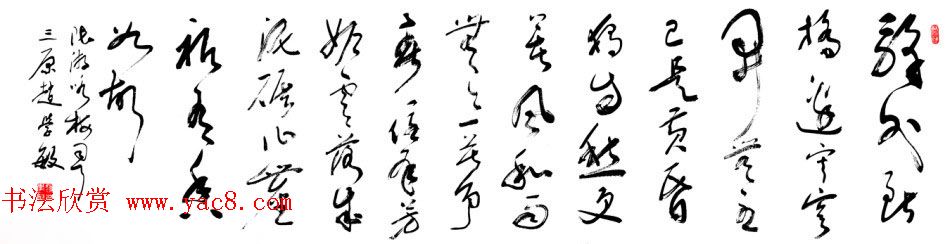 驿外断
桥边寂寞
开无主
已是黄昏
独自愁更
著风和雨
无意苦争
春一任群芳
妒零落成
泥碾作尘
祗有香
如故
陆游咏梅
三原赵学敏
书法欣赏 www.yac8.com